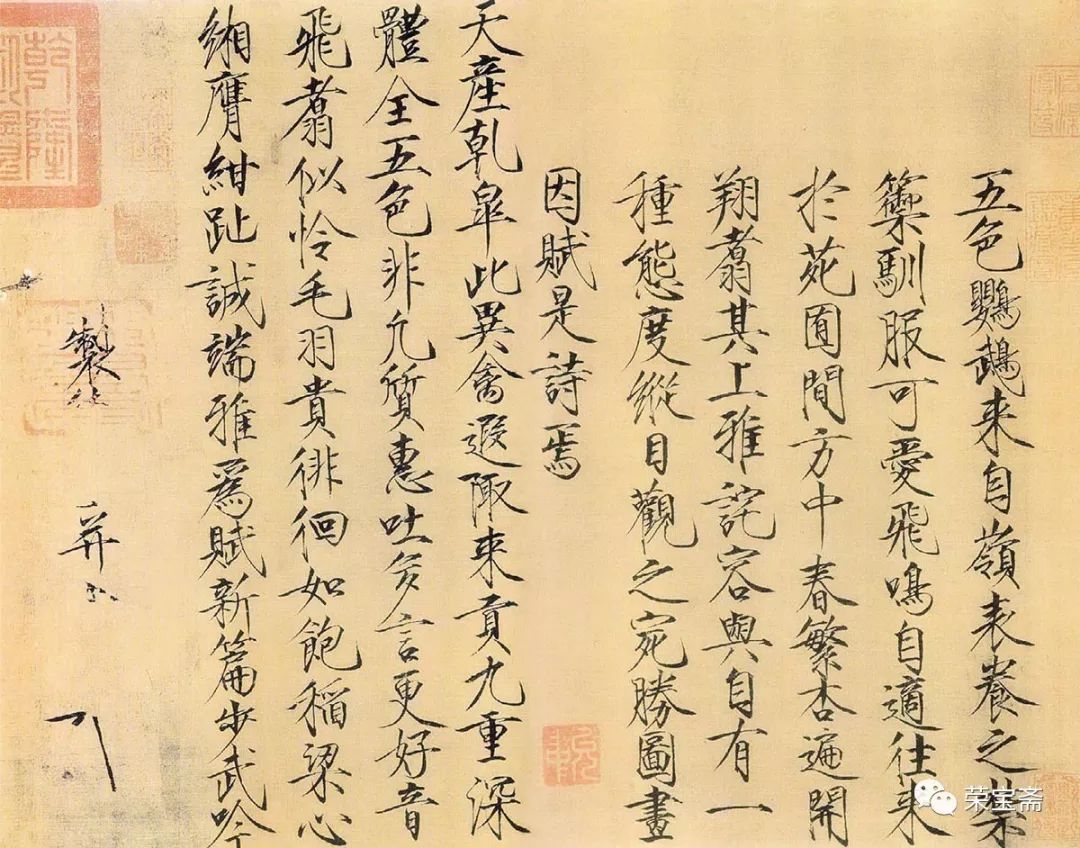 五色鸚鵡来自嶺表養之禁
籞馴服可愛飛鳴自適往来
於苑囿間方中春繁杏遍開
翔翥其上雅詫容與自有一
種態度縱目觀之宛勝圖畫
因賦是詩焉
天産乾皐此異禽遐陬来貢九重深
體全五色非凡質惠吐多言更好音
飛翥似怜毛羽貴徘徊如飽稲粱心
緗膺紺趾誠端雅爲賦新篇步武吟
製
并
乾隆
荣宝斋